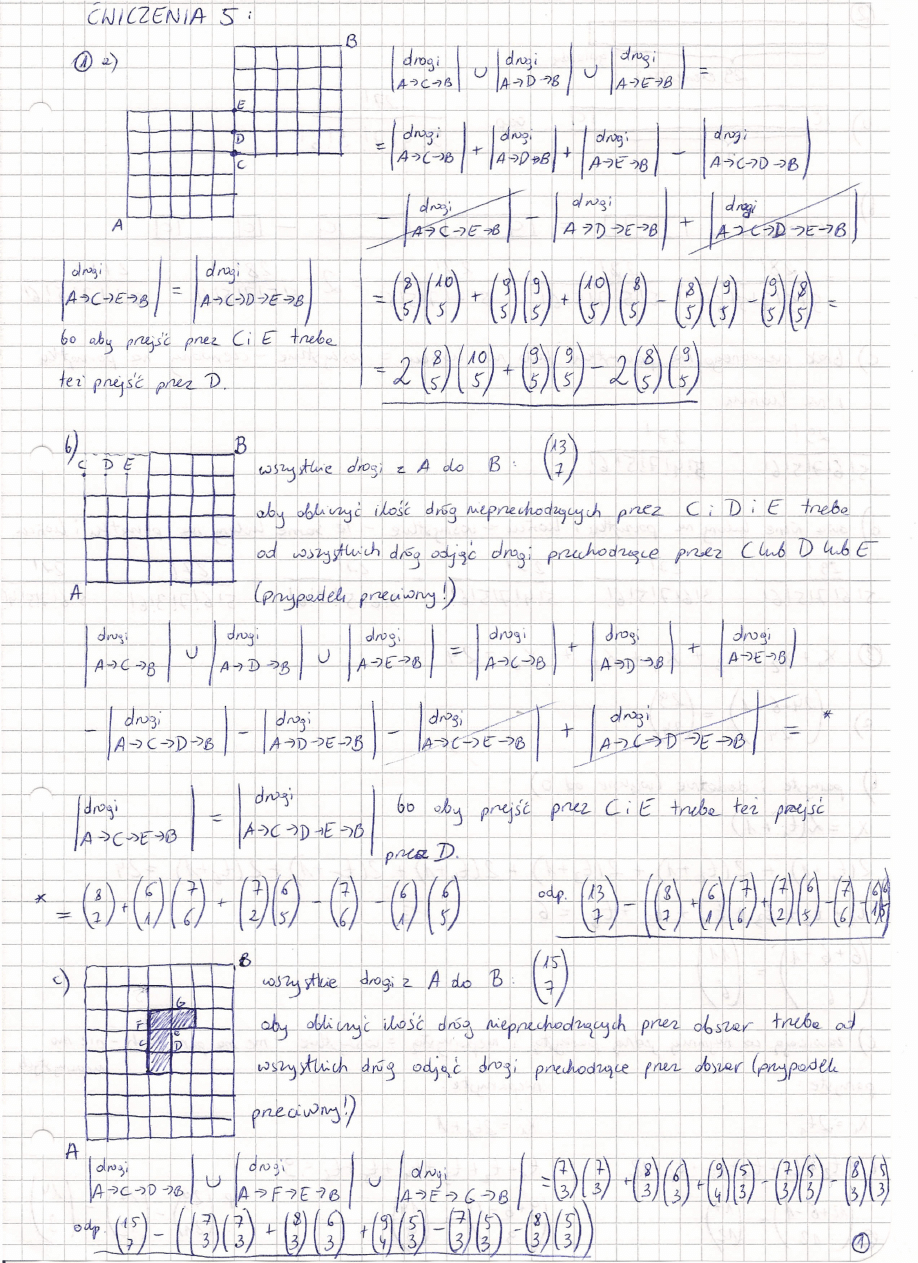 ĆWICZENIA 5:
① a)
B
E
D
C
A
|drogi A→C→B| ∪ |drogi A→D→B| ∪ |drogi A→E→B| =
= |drogi A→C→B| + |drogi A→D→B| + |drogi A→E→B| − |drogi A→C→D→B|
− |drogi A→C→E→B| − |drogi A→D→E→B| + |drogi A→C→D→E→B|
|drogi A→C→E→B| = |drogi A→C→D→E→B|
bo aby prejść prez C i E treba
też prejść prez D.
= (8 5)(10 5) + (9 5)(9 5) + (10 5)(8 5) − (8 5)(9 5) − (9 5)(8 5) =
= 2(8 5)(10 5) + (9 5)(9 5) − 2(8 5)(9 5)
b)
C D E
B
A
wszystkie drogi z A do B: (13 7)
aby obliczyć ilość dróg nieprechodzących prez C i D i E treba
od wszystkich dróg odjąć drogi prechodzące prez C lub D lub E
(prypadek preciwny!)
|drogi A→C→B| ∪ |drogi A→D→B| ∪ |drogi A→E→B| = |drogi A→C→B| + |drogi A→D→B| + |drogi A→E→B|
− |drogi A→C→D→B| − |drogi A→D→E→B| − |drogi A→C→E→B| + |drogi A→C→D→E→B| = *
|drogi A→C→E→B| = |drogi A→C→D→E→B| bo aby prejść prez C i E treba też prejść
prez D.
* = (8 7) + (6 1)(7 6) + (7 2)(6 5) − (7 6) − (6 1)(6 5)
odp. (13 7) − ((8 7) + (6 1)(7 6) + (7 2)(6 5) − (7 6) − (6 1)(6 5))
c)
B
G
F
E
C
D
A
wszystkie drogi z A do B: (15 7)
aby obliczyć ilość dróg nieprechodzących prez obszar treba od
wszystkich dróg odjąć drogi prechodzące prez obszar (prypadek
preciwny!)
|drogi A→C→D→B| ∪ |drogi A→F→E→B| ∪ |drogi A→E→G→B| = (7 3)(7 3) + (8 3)(6 3) + (9 4)(5 3) − (7 3)(5 3) − (8 3)(5 3)
odp. (15 7) − ((7 3)(7 3) + (8 3)(6 3) + (9 4)(5 3) − (7 3)(5 3) − (8 3)(5 3))
①